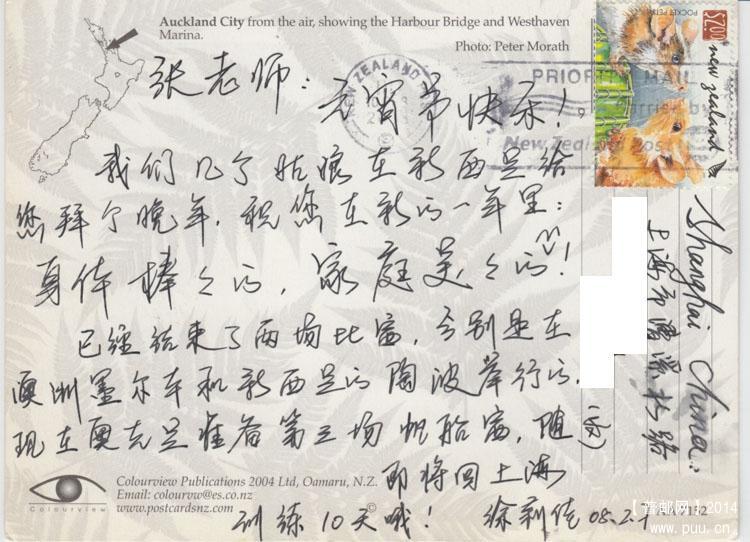 Auckland City from the air, showing the Harbour Bridge and Westhaven
Marina.
Photo: Peter Morath
张老师：元宵节快乐！
我们几个姑娘在新西兰给
您拜个晚年，祝您在新的一年里：
身体棒々的，家庭美々的！
已经结束了两场比赛，分别是在
澳洲墨尔本和新西兰的陶波举行的，
现在奥克兰准备第三场帆船赛，随
即将回上海
训练10天哦！
徐莉佳 08.2.
NEW ZEALAND
PRIORITY MAIL
New Zealand Post
POCKET PETS
$2.00
new zealand
Shanghai China:
上海市
路
(收)
Colourview
Colourview Publications 2004 Ltd, Oamaru, N.Z.
Email: colourvw@es.co.nz
www.postcardsnz.com
©
132
【普邮网】2014
www.puu.cn